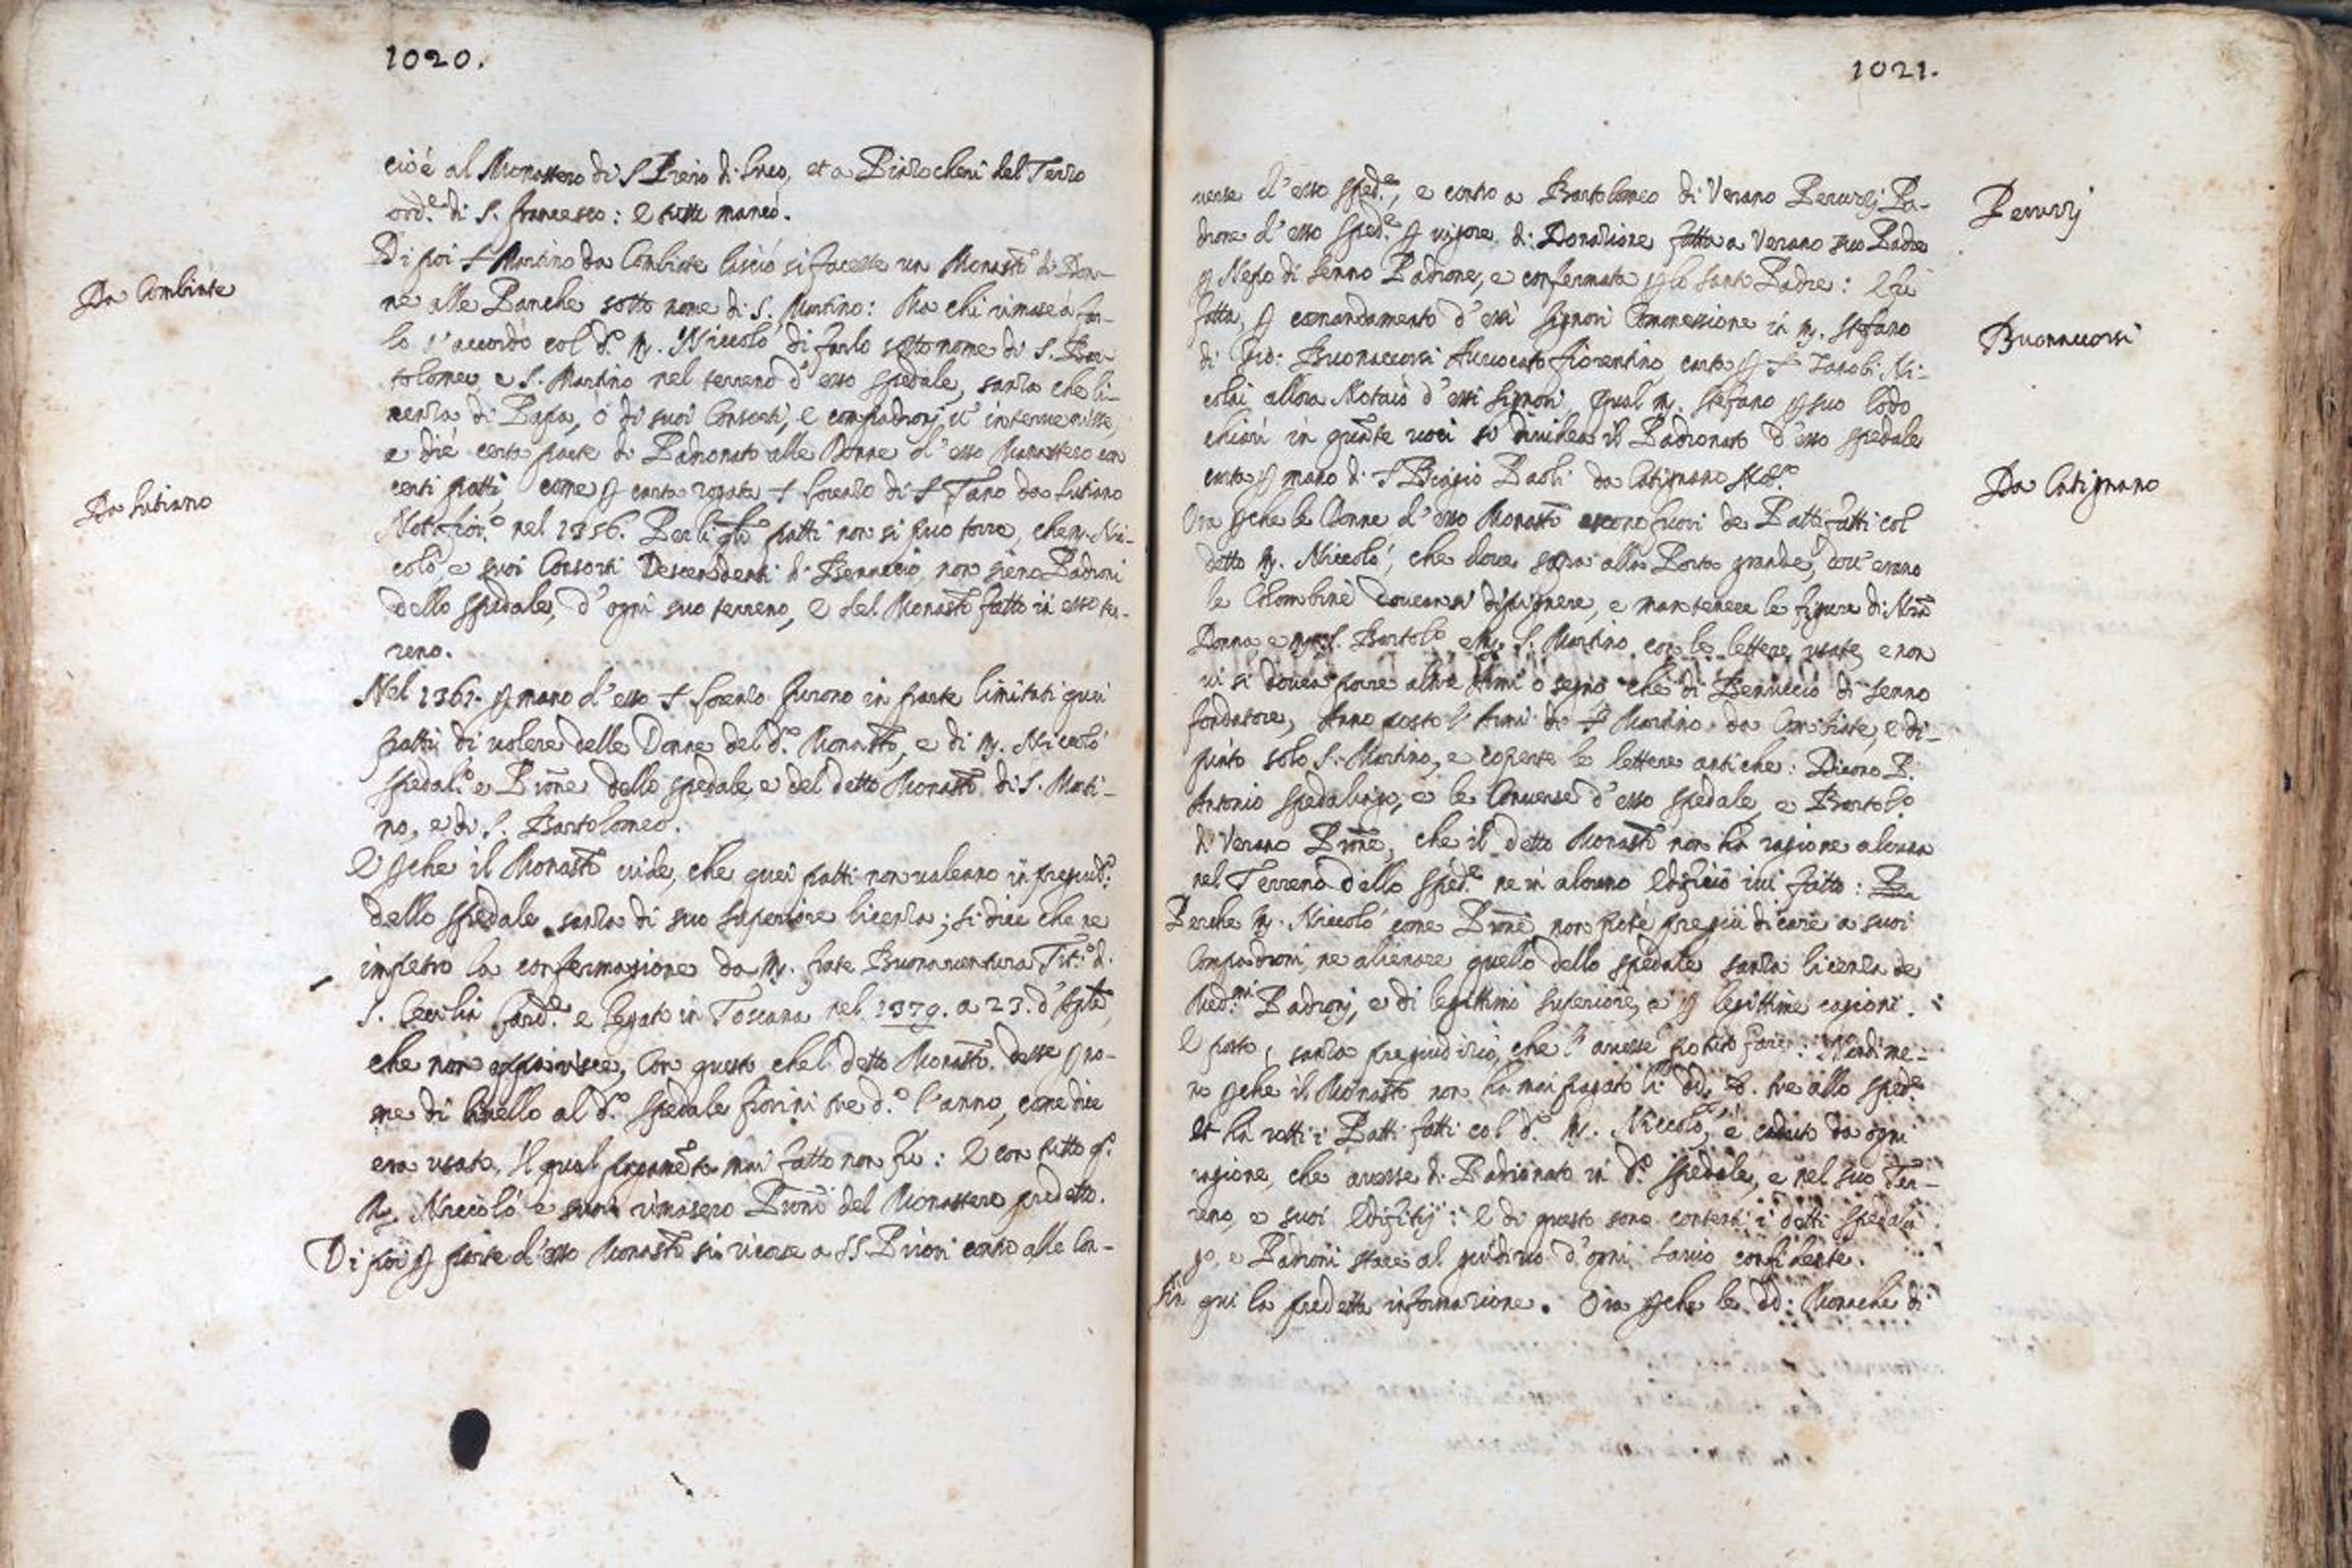 1020.
cioè al Monastero di S. Piero di Luco, et a Pinzocheri del Terzo
ord.e di S. Francesco: e tutti mancò.
Da Combiate
Di poi S. Martino da Combiate lasciò si facesse un Monast.o di Don-
ne alle Panche sotto nome di S. Martino: Ma chi rimase a far-
lo s'accordò col d.o M. Niccolò di farlo sotto nome di S. Bar-
tolomeo e S. Martino nel terreno d'esso spedale, sanza che li-
cenza di Papa, ò di suoi Consorti, e compadronj u' interuenisse,
e diè certa parte di Padronato alle Donne d'esso Monastero con
Da Lutiano
certi patti, come p carta rogata S. Lorenzo di S. Tano da Lutiano
Not.o Fior.o nel 1356. Per li patti non si può torre, che M. Nic-
colò e suoi Consorti Descendenti di Benuccio non sieno Padroni
dello spedale, d'ogni suo terreno, e del Monast.o fatto in esso ter-
reno.
Nel 1361. p mano d'esso S. Lorenzo furono in parte limitati quei
patti di uolere delle Donne del d.o Monast.o, e di M. Niccolò
spedal.o e P.rone dello spedale e del detto Monast.o di S. Marti-
no, e di S. Bartolomeo.
E pche il Monast.o uide, che quei patti non ualeano in pregiud.o
dello spedale sanza di suo superiore licenza; si dice che ne
impetrò la confermagione da M. frate Buonauentura Tit.o d.
S. Cecilia Card.e e legato in Toscana nel 1379. a 23. d'
che non apparisce, Con questo che l detto Monast.o desse p no-
me di liuello al d.o spedale fiorini tre d.o l'anno, come dice
era usato, Il qual pagam.to mai fatto non fu: E con tutto q.o
M. Niccolò e suoi rimasero P.roni del Monastero predetto.
Di poi p parte d'esso Monast.o si ricorse a SS. Priori contro alle Con-
1021.
uerse d'esso sped.e, e contro a Bartolomeo di Verano Peruzzj Pa-
Peruzzj
drone d'esso sped.e p uigore di Donazione fatta a Verano suo Padre
p Nepo di Senno Padrone, e confermata p lo Santo Padre: E fu
fatta, p comandamento d'essi Signori Commessione in M. Stefano
Buonaccorsi
di Gio: Buonaccorsi Auuocato fiorentino, carta p S. Zanobi Ni-
colai allora Notaio d'essi Signori, Qual M. Stefano p suo lodo
chiarì in quante uoci si diuidea il Padronato d'esso spedale
Da Catignano
carta p mano di S. Biagio Paoli da Catignano Not.o
Ora pche le Donne d'esso Monast.o escono fuori de Patti fatti col
detto M. Niccolò, che doue sopra alla Porta grande, dou' erano
le Colombine doueano dipignere, e mantenere le figure di Nr̃a
Donna e M. S. Bartol.o e M. S. Martino con le lettere usate, e non
ui si douea porre altre Armi o segno che di Benuccio di Senno
fondatore, Anno posto l'Armi di S. Martino da Combiate, e di-
pinto solo S. Martino, e coperte le lettere antiche: Dicono P.
Antonio spedalingo, e le Conuerse d'esso spedale, e Bartol.o
di Verano P.rone, che il detto Monast.o non hà ragione alcuna
nel Terreno dello sped.e ne in alcuno edificio iui fatto:
Perche M. Niccolò come P.rone non potè pregiudicare a suoi
Compadroni, ne alienare quello dello spedale sanza licenza de
Med.mi Padronj, e di legittimo superiore, e p legittime cagioni.
E posto, sanza pregiudizio, che l'auesse potuto fare: Nondime-
no pche il Monast.o non ha mai pagato li dd. tre allo sped.e
et ha rotti i Patti fatti col d.o M. Niccolò, è caduto da ogni
ragione, che auesse di Padronato in d.o spedale, e nel suo Ter-
reno, e suoi edifitij: E di questo sono contenti i detti spedalin
go, e Padroni stare al giudizio d'ogni sauio confidente.
Sin qui la predetta informazione. Ora pche le dd: Monache di